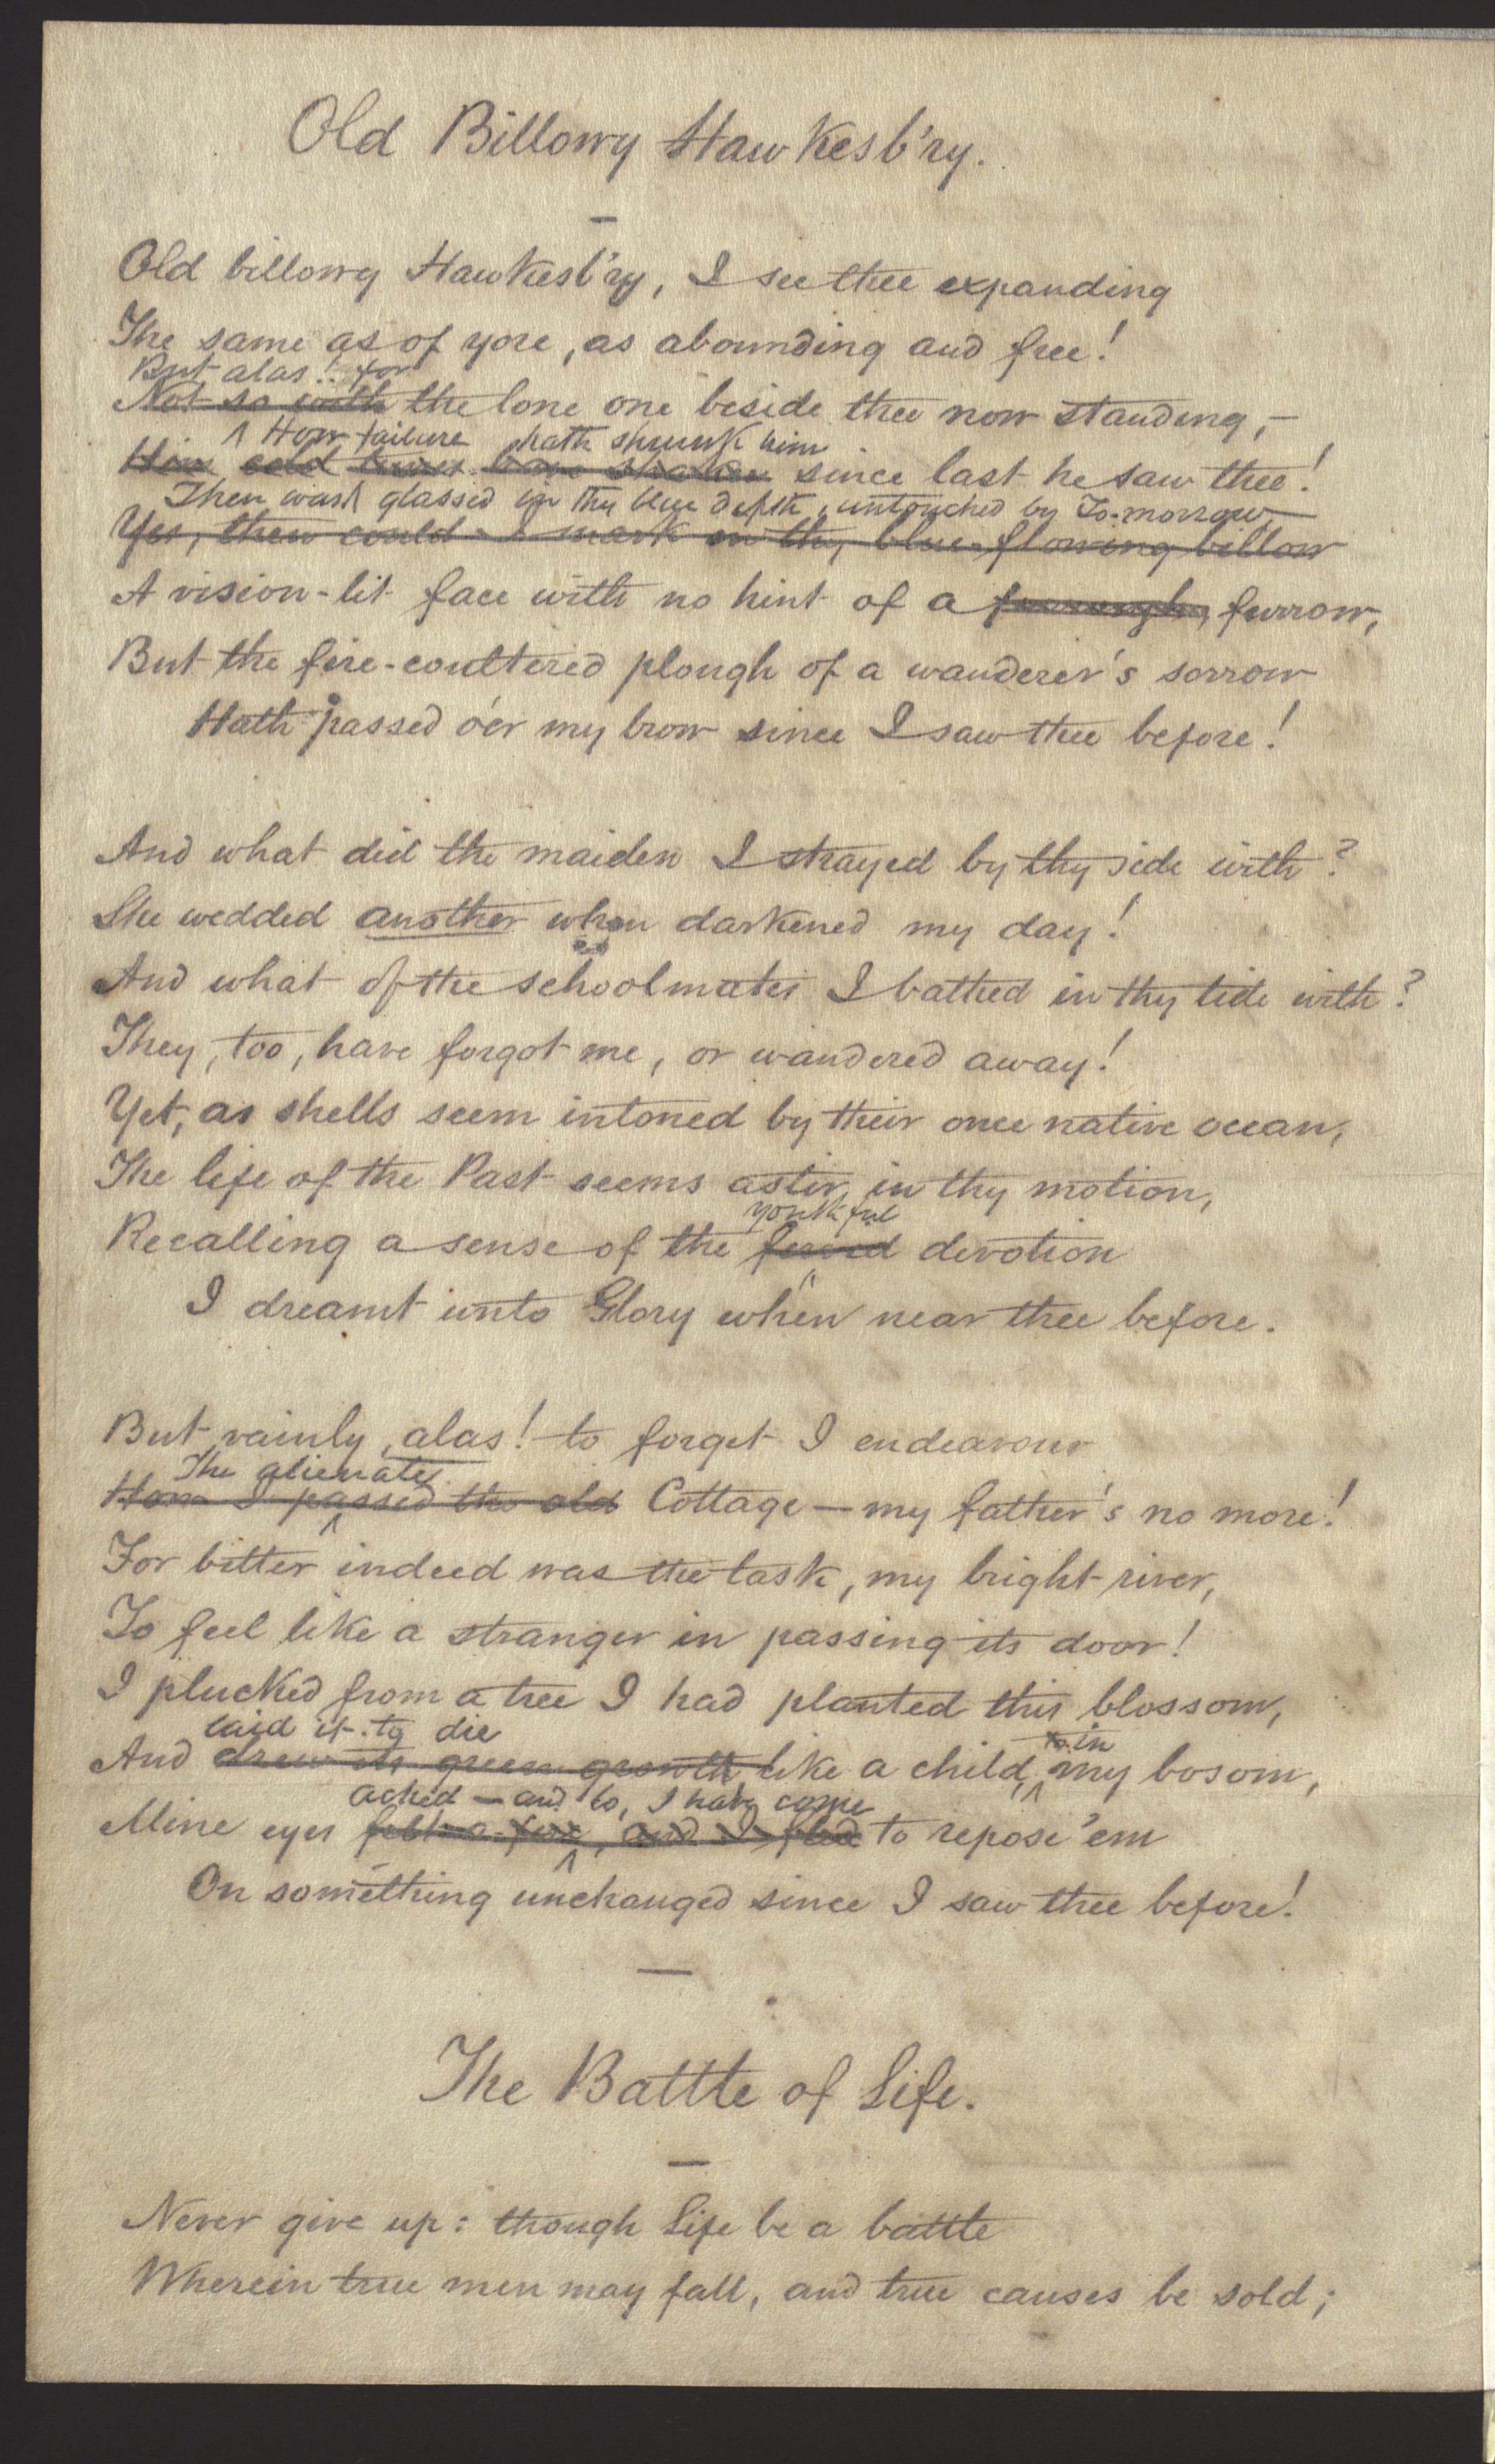 Old Billowy Hawkesb'ry.
Old billowy Hawkesb'ry, I see thee expanding
The same as of yore, as abounding and free!
But alas! for
Not so with the lone one beside thee now standing,—
How failure hath shrunk him
since last he saw thee!
Then was glassed in thy blue depth, untouched by To-morrow,
Yes, then could I mark on thy blue-flowing billow
A vision-lit face with no hint of a furrow,
But the fire-coultered plough of a wanderer's sorrow
Hath passed o'er my brow since I saw thee before!
And what did the maiden I strayed by thy side with?
She wedded another when darkened my day!
And what of the schoolmates I bathed in thy tide with?
They, too, have forgot me, or wandered away!
Yet, as shells seem intoned by their once native ocean,
The life of the Past seems astir in thy motion,
youthful
Recalling a sense of the fervid devotion
I dreamt unto Glory when near thee before.
But vainly, alas! to forget I endeavour
The alienated
How I passed the old Cottage — my father's no more!
For bitter indeed was the task, my bright river,
To feel like a stranger in passing its door!
I plucked from a tree I had planted this blossom,
laid it to die in
And drew its green growth like a child, my bosom,
ached — and lo, I have come
Mine eyes felt a-fire, and I fled to repose 'em
On something unchanged since I saw thee before!
The Battle of Life.
Never give up: though Life be a battle
Wherein true men may fall, and true causes be sold;